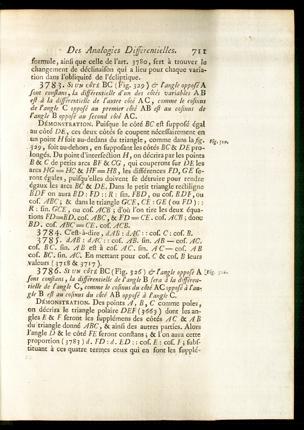 Des Analogies Différentielles. 711
formule, ainsi que celle de l'art. 3780, sert à trouver le
changement de déclinaison qui a lieu pour chaque varia-
tion dans l'obliquité de l'écliptique.
3783. SI UN CÔTÉ BC (Fig. 329) & l'angle opposé A
sont constans, la différentielle d'un des côtés variables AB
est à la différentielle de l'autre côté AC, comme le cosinus
de l'angle C opposé au premier côté AB est au cosinus de
l'angle B opposé au second côté AC.
DÉMONSTRATION. Puisque le côté BC est supposé égal
au côté DE, ces deux côtés se coupent nécessairement en
un point H soit au-dedans du triangle, comme dans la fig.
329, soit au-dehors, en supposant les côtés BC & DE pro-
longés. Du point d'intersection H, on décrira par les points
B & C de petits arcs BF & CG, qui couperont sur DE les
arcs HG = HC & HF = HB, les différences FD, GE se-
ront égales, puisqu'elles doivent se détruire pour rendre
égaux les arcs BC & DE. Dans le petit triangle rectiligne
BDF on aura BD : FD :: R : sin. FBD, ou cos. BDF, ou
cos. ABC; & dans le triangle GCE, CE : GE (ou FD) ::
R : sin. GCE, ou cos. ACB; d'où l'on tire les deux équa-
tions FD = BD. cos. ABC, & FD = CE. cos. ACB; donc
BD. cos. ABC = CE. cos. ACB.
3784. C'est-à-dire, dAB : dAC :: cos. C : cos. B.
3785. dAB : dAC :: cos. AB. sin. AB — cos. AC.
cos. BC. sin. AB est à cos. AC. sin. AC — cos. AB
cos. BC. sin. AC. En mettant pour cos. C & cos. B leurs
valeurs (3718 & 3717).
3786. SI UN CÔTÉ BC (Fig. 326) & l'angle opposé A
sont constans, la différentielle de l'angle B sera à la différen-
tielle de l'angle C, comme le cosinus du côté AC opposé à l'an-
gle B est au cosinus du côté AB opposé à l'angle C.
DÉMONSTRATION. Des points A, B, C comme poles,
on décrira le triangle polaire DEF (3663) dont les an-
gles E & F seront les supplémens des côtés AC & AB
du triangle donné ABC, & ainsi des autres parties. Alors
l'angle D & le côté FE seront constans; & l'on aura cette
proportion (3783) d. FD : d. ED :: cos. E : cos. F; subs-
tituant à ces quatre termes ceux qui en sont les supplé-